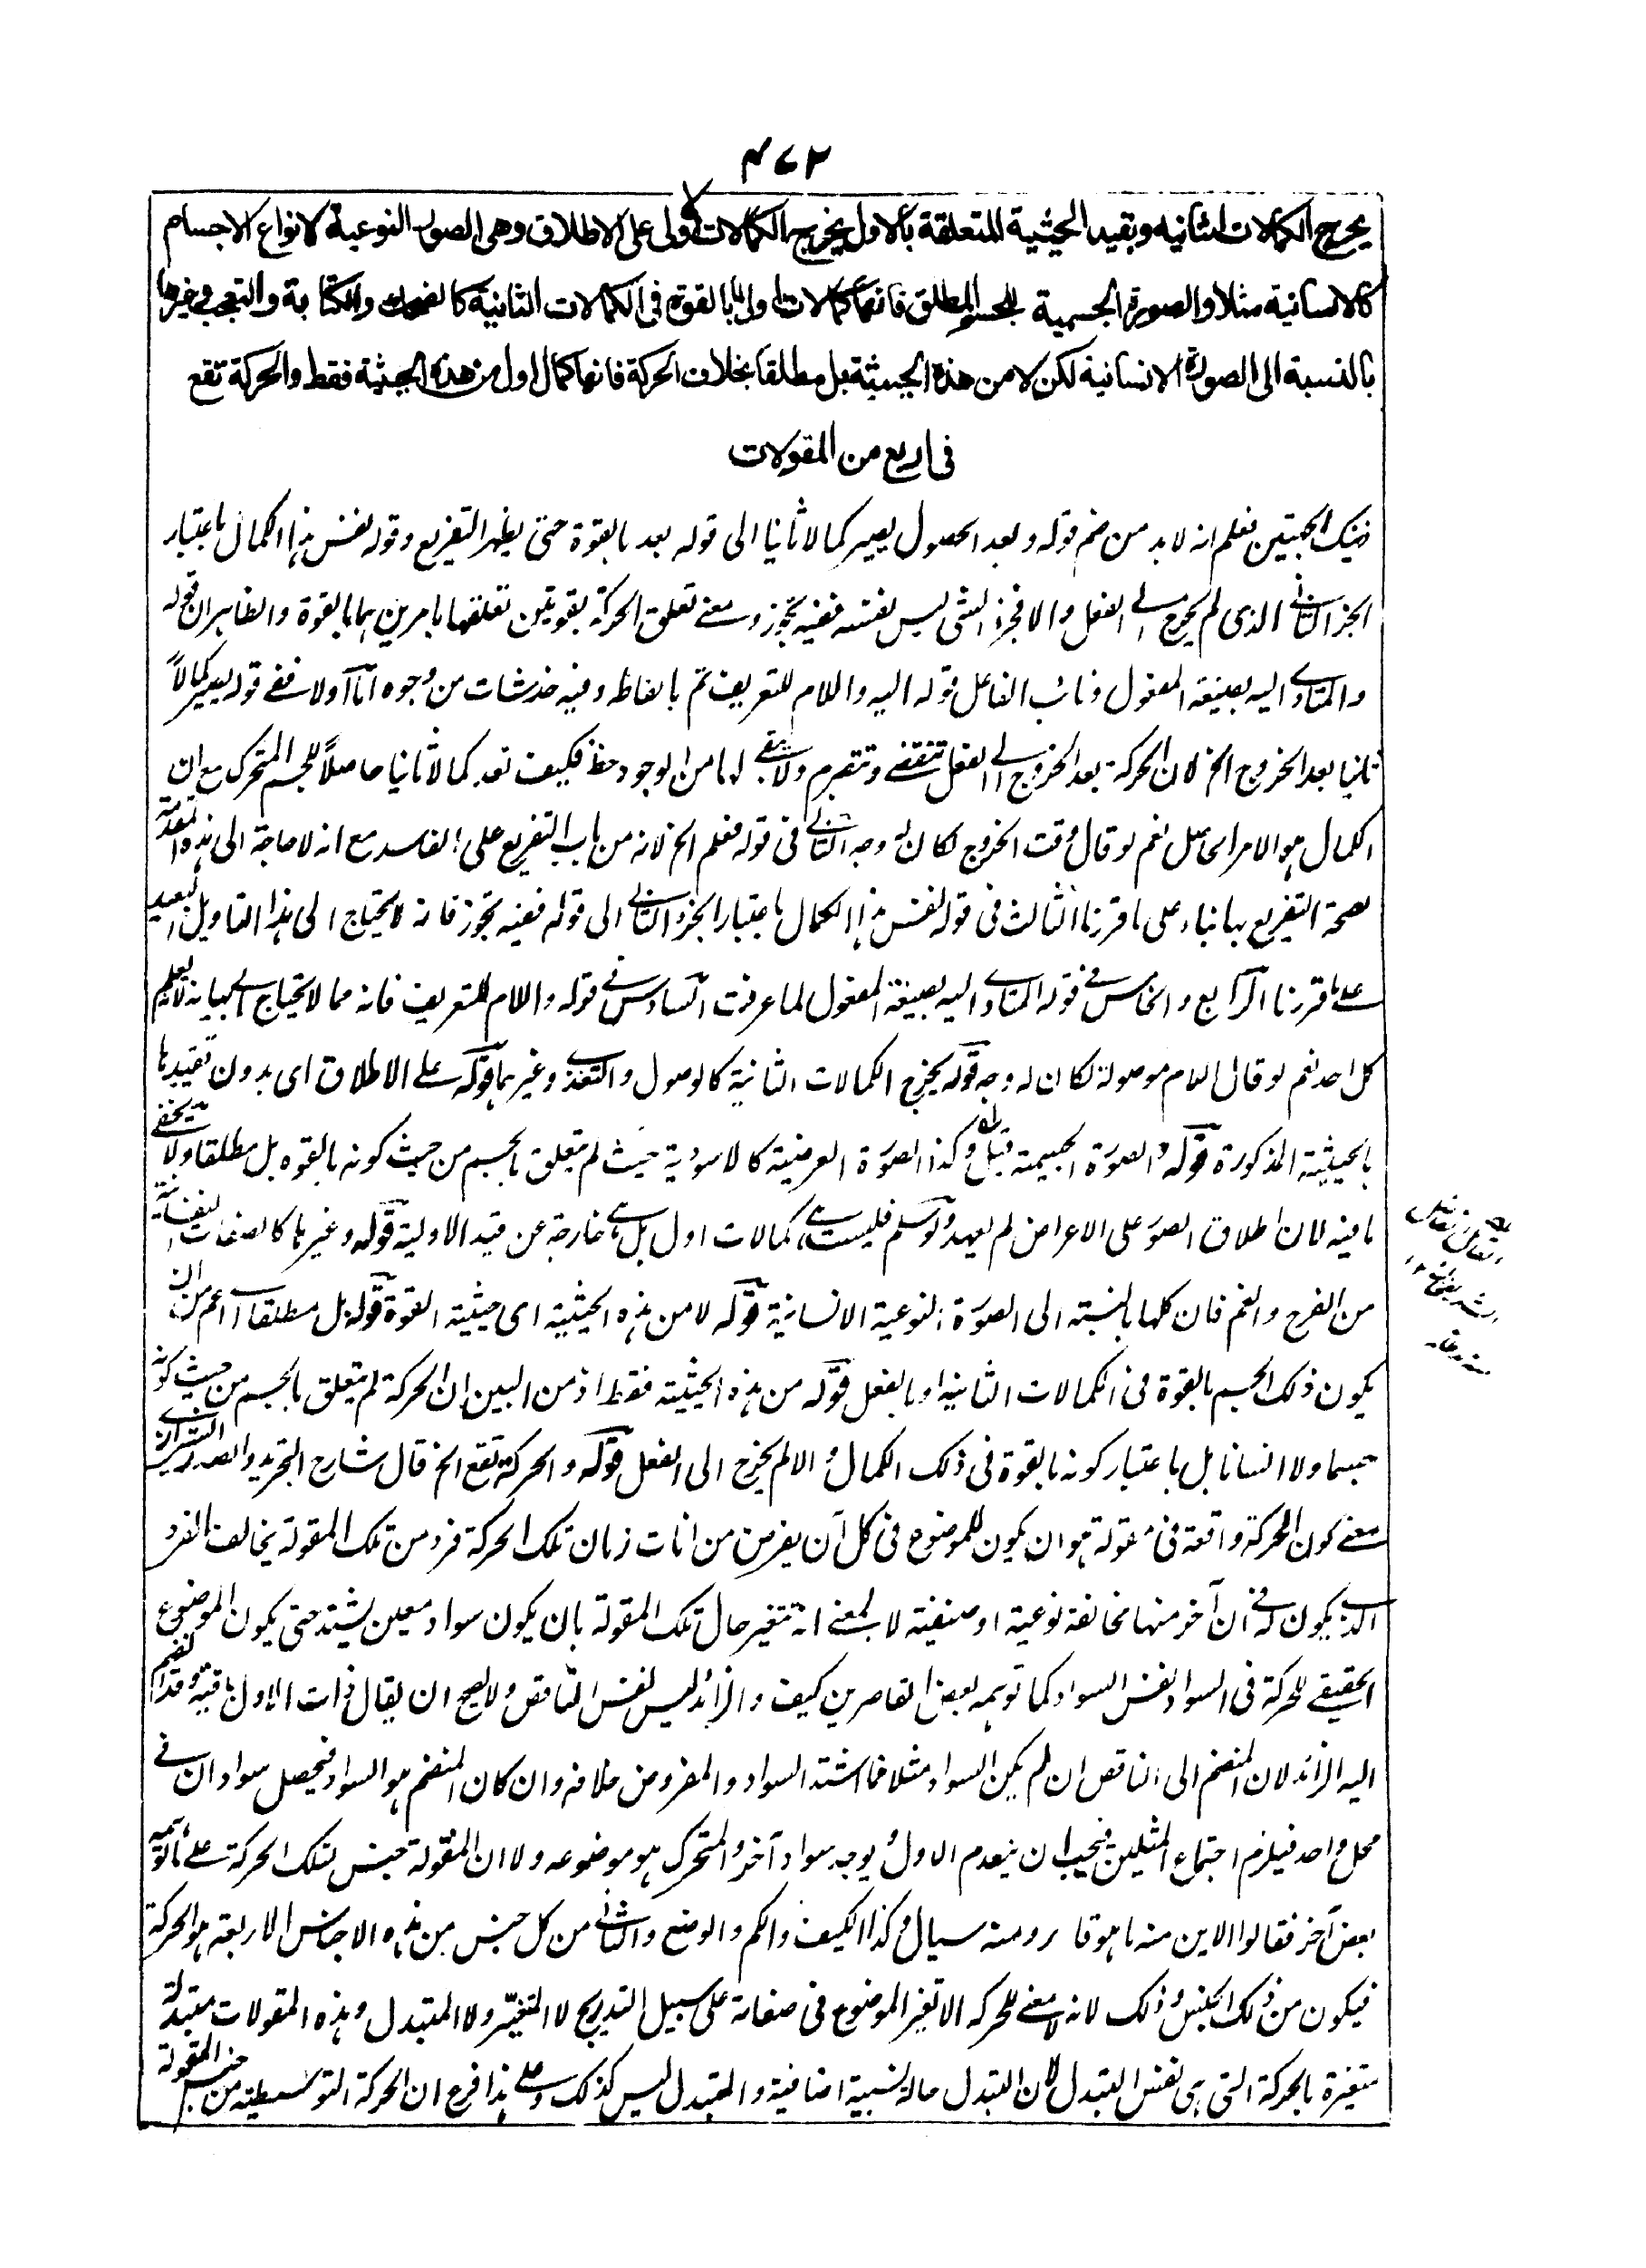 ٤٧٢
يخرج الكمالات الثانيه وبقيد الحيثية المتعلقة بالاول يخرج الكمالات الاولى على الاطلاق وهى الصور النوعية لانواع الاجسام
كالانسانية مثلا والصورة الجسمية للجسم المطلق فانها كمالات اولى لما بالقوة فى الكمالات الثانية كالضحك والكتابة والتعجب وغيرها
بالنسبة الى الصورة الانسانية لكن لا من هذه الحيثية بل مطلقا بخلاف الحركة فانها كمال اول من هذه الحيثية فقط والحركة تقع
فى اربع من المقولات
الجهتين نعلم انه لا بد من ضم قوله وبعد الحصول يصير كمالا ثانيا الى قوله بعد بالقوة حتى يظهر التفريع وقوله نفس هذا الكمال باعتبار
الجزء الثانى الذى لم يخرج الى الفعل والا فجزء الشئ ليس نفسه ففيه تجوز ومعنى تعلق الحركة بقوتين تعلقها بامرين هما بالقوة والظاهر ان قوله
والمتأدى اليه بصيغة المفعول ونائب الفاعل قوله اليه واللام للتعريف تم بالفاظه وفيه خدشات من وجوه اما اولا ففى قوله يصير كمالاً
ثانيا بعد الخروج الخ لان الحركة بعد الخروج الى الفعل تنقضى وتتصرم ولا يبقى لها من الوجود حظ فكيف تعد كمالا ثانيا حاصلاً للجسم المتحرك مع ان
الكمال هو الامر الحاصل نعم لو قال وقت الخروج لكان له وجه الثانى فى قوله فعلم الخ لانه من باب التفريع على الفاسد مع انه لا حاجة الى هذه المقدمة
لصحة التفريع بها بناء على ما قررنا الثالث فى قوله نفس هذا الكمال باعتبار الجزء الثانى الى قوله ففيه تجوز فانه لا يحتاج الى هذا التاويل البعيد
على ما قررنا الرابع والخامس فى قوله المتأدى اليه بصيغة المفعول لما عرفت السادس فى قوله واللام للتعريف فانه مما لا يحتاج الى بيانه لعلم
كل احد نعم لو قال اللام موصولة لكان له وجه قوله يخرج الكمالات الثانية كالوصول والتغذى وغيرهما قوله على الاطلاق اى بدون تقييدها
بالحيثية المذكورة قوله والصورة الجسيمة قيل وكذا الصورة العرضية كالاسودية حيث لم تتعلق بالجسم من حيث كونه بالقوه بل مطلقا ولا يخفى
ما فيه لان اطلاق الصور على الاعراض لم يعهد ولو سلم فليست هى كمالات اول بل هى خارجة عن قيد الاولية قوله وغيرها كالصفات النفسانية
من الفرح والغم فان كلها بالنسبته الى الصورة النوعية الانسانية قوله لا من هذه الحيثية اى حيثية القوة قوله بل مطلقا اى اعم من ان
يكون ذلك الجسم بالقوة فى الكمالات الثانية او بالفعل قوله من هذه الحيثية فقط اذ من البين ان الحركة لم تتعلق بالجسم من حيث كونه
جسما ولا انسانا بل باعتبار كونه بالقوة فى ذلك الكمال والا لم يخرج الى الفعل قوله والحركة تقع الخ قال شارح التجريد والصدر الشيرازى
معنى كون الحركة واقعة فى مقولة هو ان يكون للموضوع فى كل آن يفرض من انات زمان تلك الحركة فرد من تلك المقولة يخالف الفرد
الذى يكون له فى آن آخر منها مخالفة نوعية او صنفية لا بمعنى انه تتغير حال تلك المقولة بان يكون سواد معين يشتد حتى يكون الموضوع
الحقيقى للحركة فى السواد نفس السواد كما توهمه بعض القاصرين كيف والزائد ليس نفس الناقص ولا يصح ان يقال ذات الاول باقية وقد انضم
اليه الزائد لان المنضم الى الناقص ان لم يكن السواد مثلا فما اشتد السواد والمفروض خلافه وان كان المنضم هو السواد فيحصل سوادان فى
محل واحد فيلزم اجتماع المثلين فيجب ان ينعدم الاول ويوجد سواد آخر والمتحرك هو موضوعه ولا ان المقولة جنس لتلك الحركة على ما توهمه
بعض آخر فقالوا الاين منه ما هو قار ومنه سيال وكذا الكيف والكم والوضع والثانى من كل جنس من هذه الاجناس الاربعة هو الحركة
فيكون من ذلك الجنس وذلك لانه لا معنى للحركه الا تغير الموضوع فى صفاته على سبيل التدريج لا المتغيّر ولا المتبدل وهذه المقولات متبدلة
متغيرة بالحركة التى هى نفس التبدل لان التبدل حالة نسبية اضافية والمتبدل ليس كذلك وعلى هذا فرع ان الحركة التوسطية من جنس المقولة